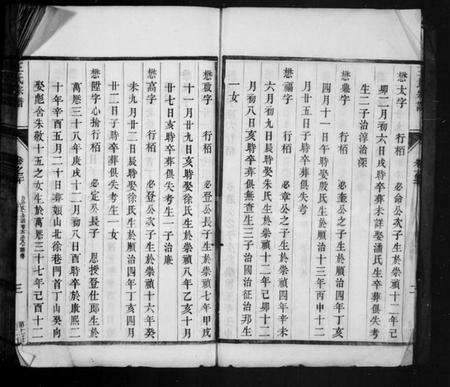 懋太字 行栢 必命公次子生於崇禎十二年己
卯二月初六日戌時卒葬未詳娶潘氏生卒葬俱失考
生二子治淳治深
懋彝字 行栢 必奎公之子生於順治四年丁亥
四月十一日午時娶殷氏生於順治十三年丙申十二
月廿五日子時卒葬俱失考
懋福字 行栢 必章公之子生於崇禎四年辛未
十月初一日辰時娶朱氏生於崇禎十二年己卯十二
月初八日亥時卒葬俱無查生三子治國治征治邦生
一女
懋禎字 行栢 必登公長子生於崇禎七年甲戌
十一月廿九日亥時娶徐氏生於崇禎八年乙亥十月
廿七日亥時卒葬俱失考生一子治廉
懋高字 行栢 必登公次子生於崇禎十六年癸
未九月廿二日辰時娶徐氏生於順治四年丁亥四月
廿二日子時卒葬俱失考生一女
懋陞字心揚行栢 必定公長子 恩授登仕郎生於
萬曆三十八年庚戌十二月初八日酉時卒於康熙二
十年辛酉五月二十日葬如山北徐巷門首丁山癸向
娶彪舍朱敬十五之女生於萬曆三十七年己酉十二
氏宗譜
三